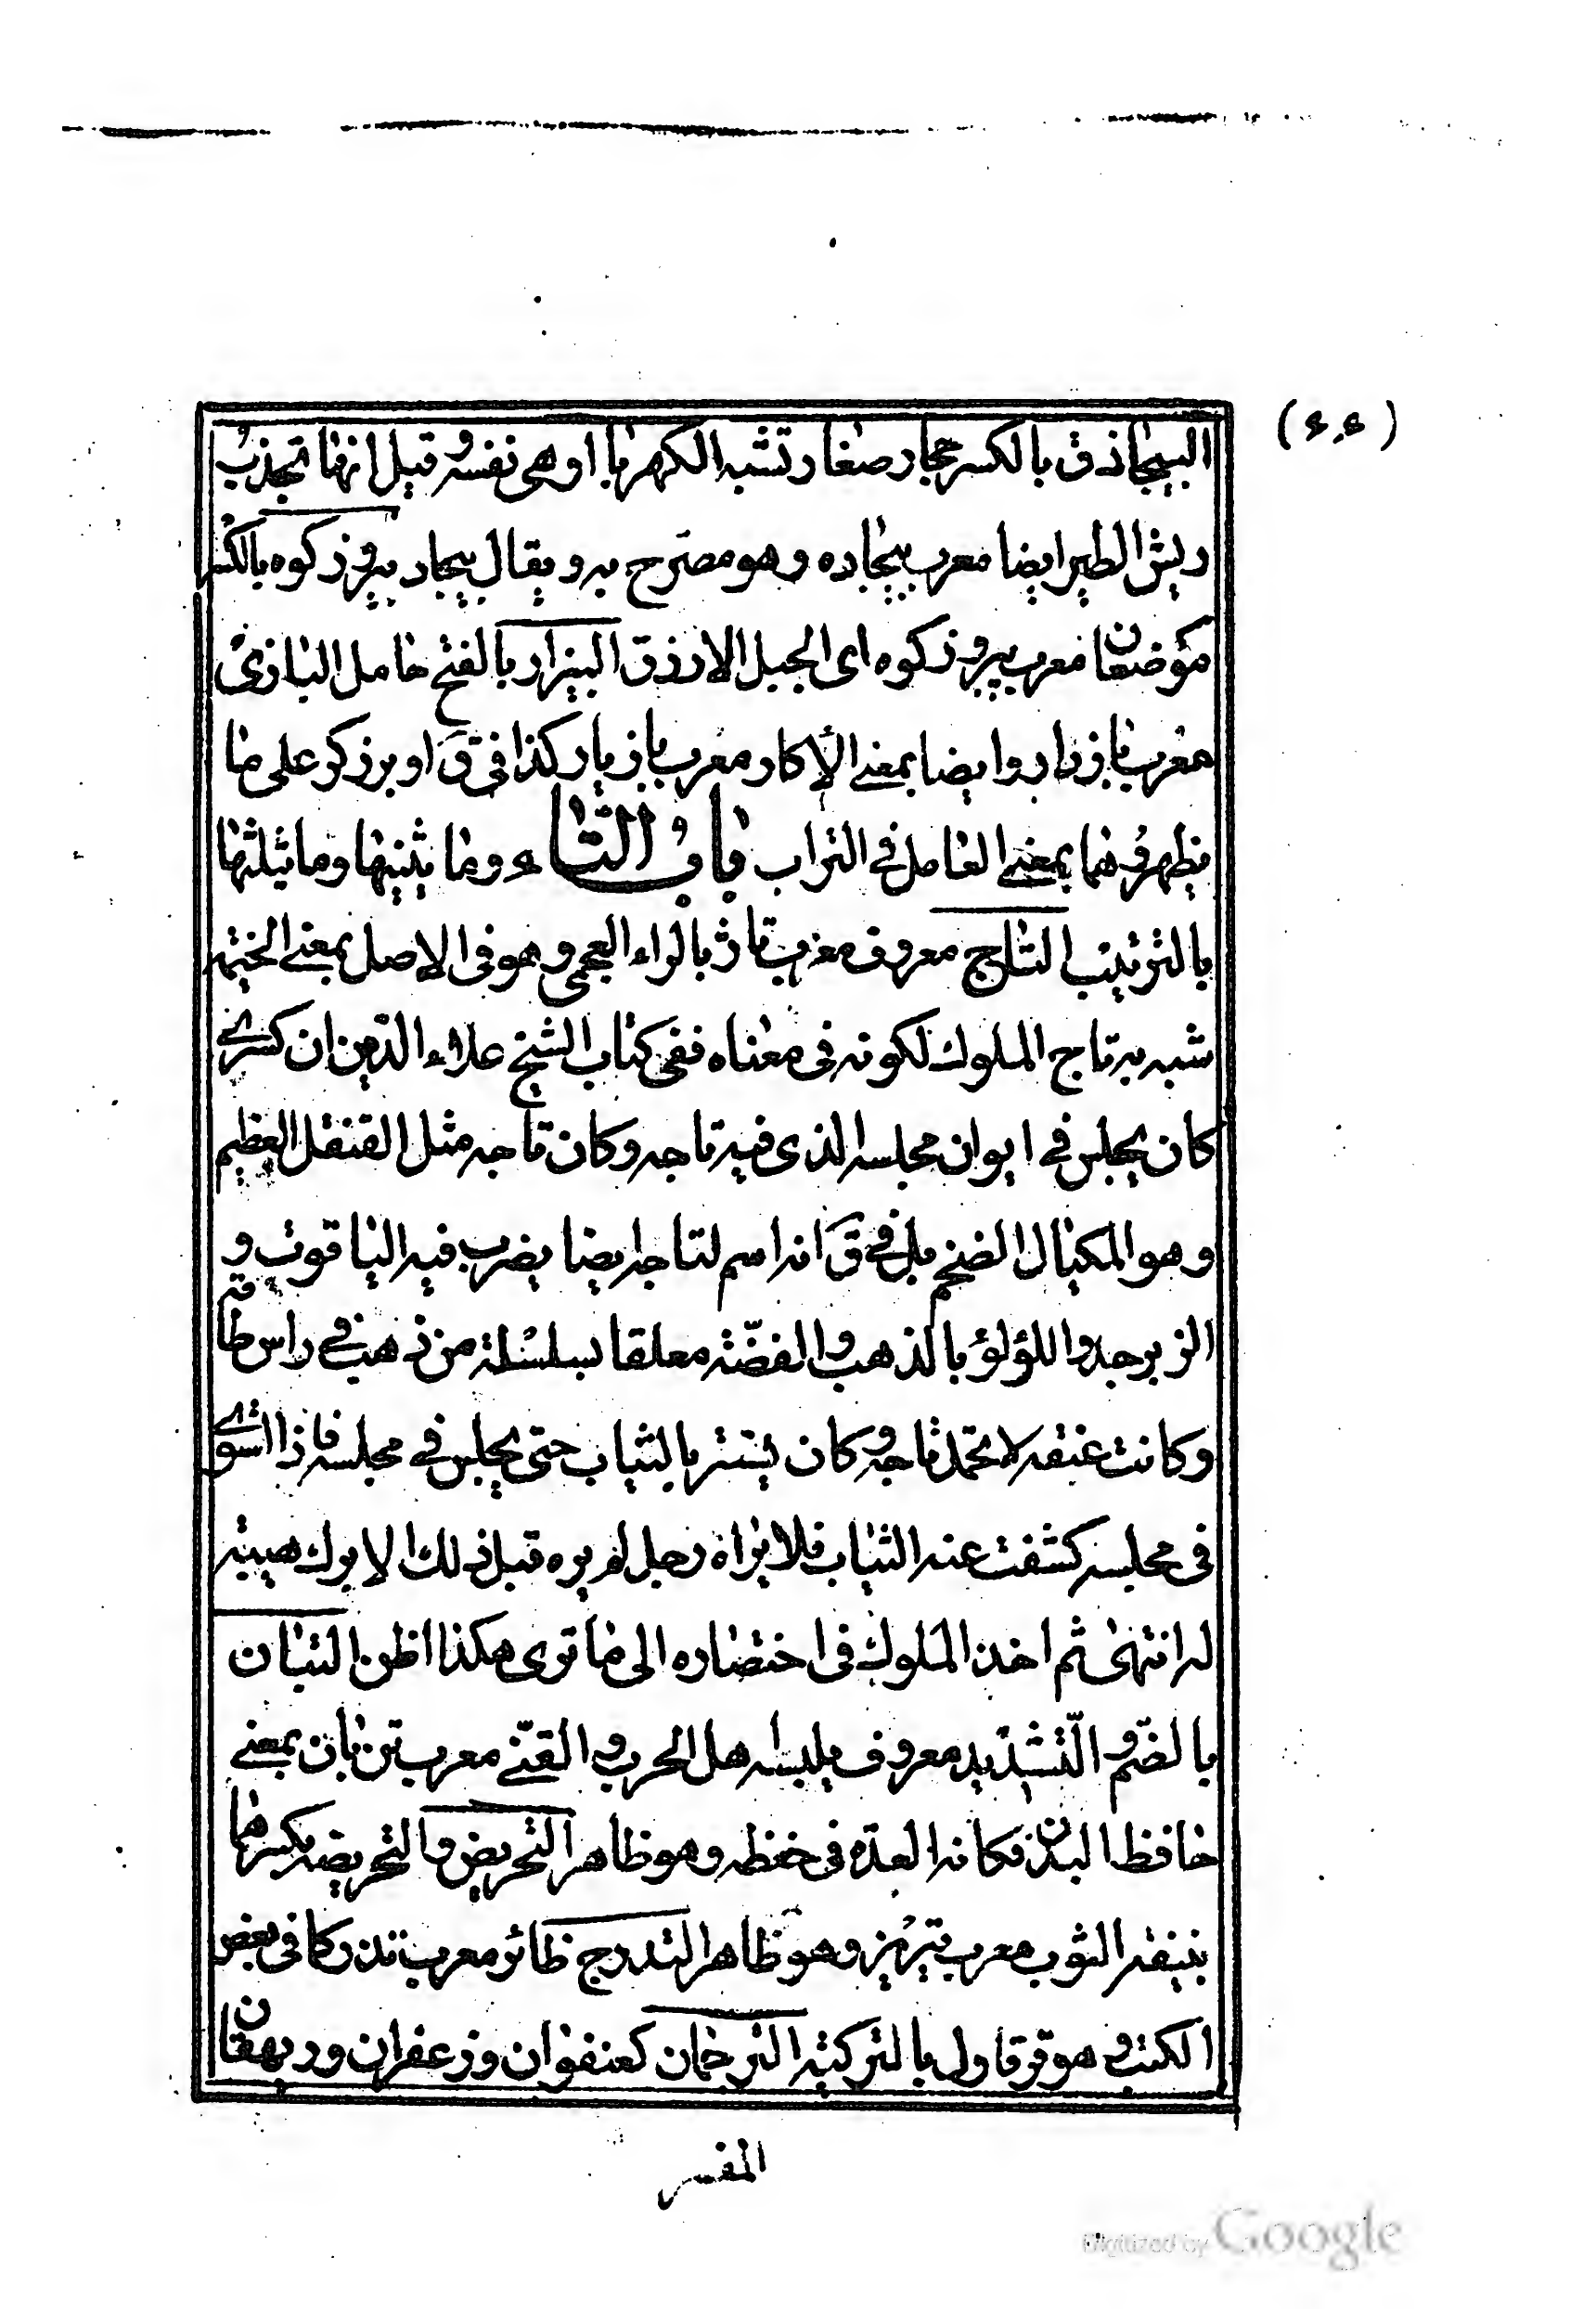 (ع.ع)
البيجاذق بالكسر حجار صغار تشبه الكهربا او هى نفسه و قيل انها تجذب
ريش الطير ايضا معرب بيجاده وهو مصرح به ويقال بيجاد به فيروزكوه بالكسر
موضعان معرب پيروزكوه اى الجبل الازرق البيزار بالفتح حامل البازى
معرب بازدار وايضا بمعنى الأكار معرب بازيار كذا فى ق او برزكر على ما
يظهر فهما بمعنى العامل فى التراب باب التاء وما يثنيها وما يثلثها
بالترتيب التاج معروف معرب تاژ بالراء العجمى وهو فى الاصل بمعنى الخيمة
شبه به تاج الملوك لكونه فى معناه ففى كتاب الشيخ علاء الدين ان كسرى
كان يجلس فى ايوان مجلسه الذى فيه تاجه وكان تاجه مثل القنقل العظيم
وهو المكيال الضخم بل فى ق انه اسم لتاجه ايضا يضرب فيه الياقوت و
الزبرجد واللؤلؤ بالذهب والفضة معلقا بسلسلة من ذهب فى راس طاقه
وكانت عنقه لا تحمل تاجه وكان يستتر بالثياب حتى يجلس فى مجلسه فاذا استوى
فى مجلسه كشفت عنه الثياب فلا يراه رجل لم يره قبل ذلك الا برك هيبة
له انتهى ثم اخذ الملوك فى اختصاره الى ما ترى هكذا اظن التبان
بالضم والتشديد معروف يلبسه اهل الحرب و القنى معرب تن بان بمعنى
حافظ البدن فكانه العدة فى حفظه وهو ظاهر التخريض والتخريضه بكسرهما
بنيقة الثوب معرب تيريز وهو ظاهر التدرج طائر معرب تذرر كما فى بعض
الكتب وهو قرقاول بالتركية الترجمان كعنفوان وزعفران وريهقان
المفسر
Digitized by Google